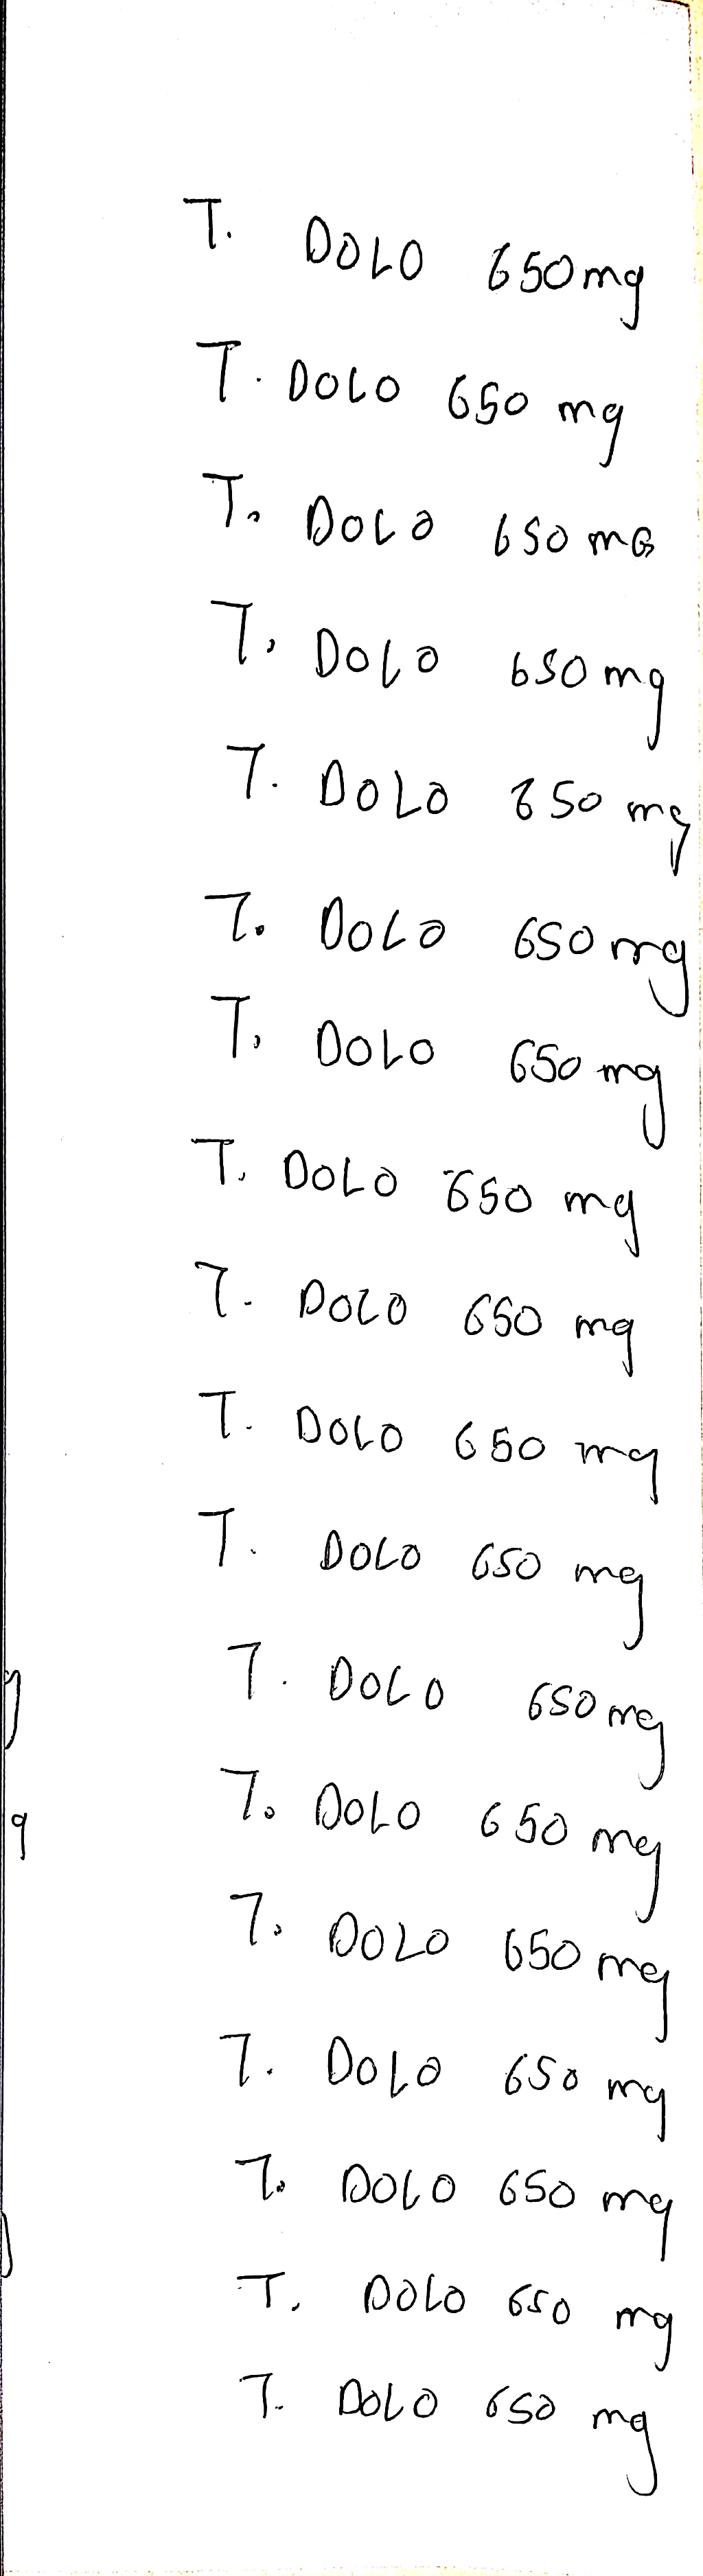 T. DOLO 650mg
T. DOLO 650 mg
T. DOLO 650 mG
T. DOLO 650 mg
T. DOLO 650 mg
T. DOLO 650 mg
T. DOLO 650 mg
T. DOLO 650 mg
T. DOLO 650 mg
T. DOLO 650 mg
T. DOLO 650 mg
T. DOLO 650 mg
T. DOLO 650 mg
T. DOLO 650 mg
T. DOLO 650 mg
T. DOLO 650 mg
T. DOLO 650 mg
T. DOLO 650 mg